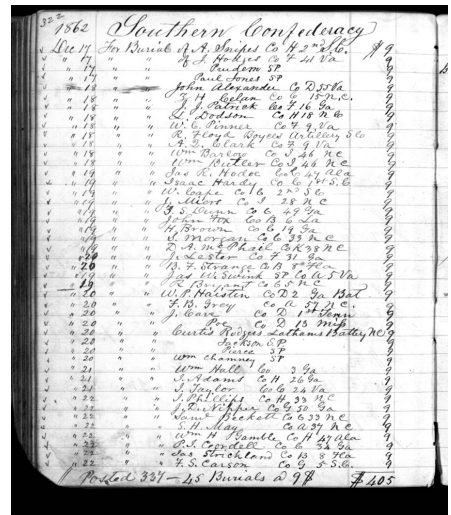 322
1862 Southern Confederacy
Dec 17 For Burial of A. Snipes Co H 2nd S.C. $ 9
" 17 " " " J. Hottges Co F 41 Va 9
" 17 " " " Prudem SP 9
" 17 " " " Paul Jones SP 9
" 18 " " " John Alexander Co D 55 Va 9
" 18 " " " H. Co G 15 N.C. 9
" 18 " " " J. Patrick Co F 16 Ga 9
" 18 " " " Dodson Co H 18 N C 9
" 18 " " " W. C. Pinner Co F 9 Va 9
" 18 " " " R. Floyd Artillery S C 9
" 18 " " " A. Q. Clark Co F 9 Va 9
" 18 " " " Wm Barlow Co I 46 N C 9
" 18 " " " Wm Butler Co I 44 N C 9
" 19 " " " Jas R. Co G 47 Ala 9
" 19 " " " Isaac Hardy Co G 1st S.C 9
" 19 " " " W. Cape Co G 2nd S C 9
" 19 " " " J. Co I 28 N C 9
" 19 " " " F. S. Dunn Co G 49 Ga 9
" 19 " " " John Fox Co B 6 La 9
" 19 " " " H. Brown Co G 19 Ga 9
" 19 " " " S. Morgan Co G 33 N C 9
" 19 " " " D. A. McPhail Co K 38 N C 9
" 20 " " " J. Lester Co F 31 Ga 9
" 20 " " " B. F. Strange Co B 8th Fla 9
" 19 " " " Jas W. Swink SP Co A 5 Va 9
" 19 " " " R Bryant Co G 5 N C 9
" 20 " " " W. P. Haisten Co D 2 Ga Bat 9
" 20 " " " F. B. Grey Co A 57 N C. 9
" 20 " " " J. Cave Co D 1st Tenn 9
" 20 " " " Poe Co D 13 Miss 9
" 20 " " " Curtis Rodgers Lathams Battery N C 9
" 20 " " " Jackson S.P 9
" 20 " " " Pierce SP 9
" 20 " " " Wm Chamney SP 9
" 21 " " " Wm Hall Co 3 Ga 9
" 21 " " " J. Adams Co H 26 Ga 9
" 21 " " " J. Taylor Co G 24 Va 9
" 22 " " " J. Phillips Co H 33 N C 9
" 22 " " " J. D. Nipper Co G 50 Ga 9
" 22 " " " Saml Beckett Co G 33 N C 9
" 22 " " " S. H. May Co A 37 N C 9
" 22 " " " Wm H Gamble Co H 47 Ala 9
" 22 " " " P. T. Cordell Co G 24 Ga 9
" 22 " " " Jas Strickland Co B 8 Fla 9
" 22 " " " F. S. Carson Co G 5 S.C. 9
Posted 337 — 45 Burials @ 9$ $ 405